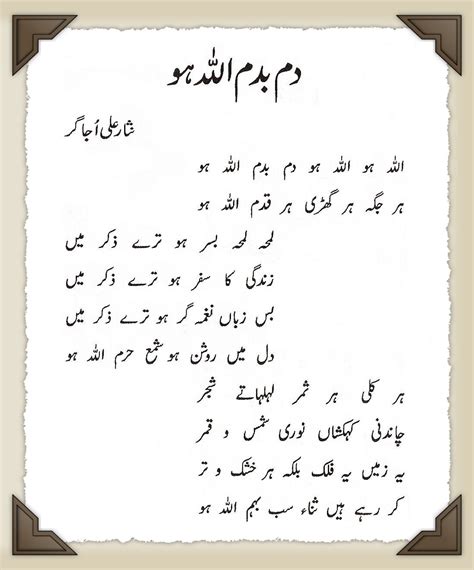 دم بدم اللہ ہو
نثار علی اُجاگر
اللہ ہو اللہ ہو دم بدم اللہ ہو
ہر جگہ ہر گھڑی ہر قدم اللہ ہو
لمحہ لمحہ بسر ہو ترے ذکر میں
زندگی کا سفر ہو ترے ذکر میں
بس زباں نغمہ گر ہو ترے ذکر میں
دل میں روشن ہو شمع حرم اللہ ہو
ہر کلی ہر ثمر لہلہاتے شجر
چاندنی کہکشاں نوری شمس و قمر
یہ زمیں یہ فلک بلکہ ہر خشک و تر
کر رہے ہیں ثناء سب بہم اللہ ہو